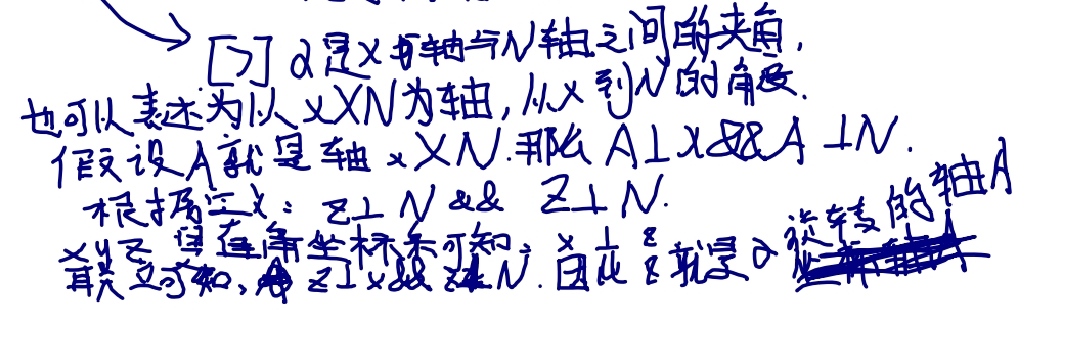 [>] α是X轴与N轴之间的夹角,
也可以表述为以xXN为轴,从x到N的角度.
假设A就是轴xXN.那么A⊥X&&A⊥N.
根据定义: z⊥N && Z⊥N.
xyz是直角坐标系可知: x⊥z
联立可知, z⊥x&&z⊥N.因此z就是α旋转的轴A